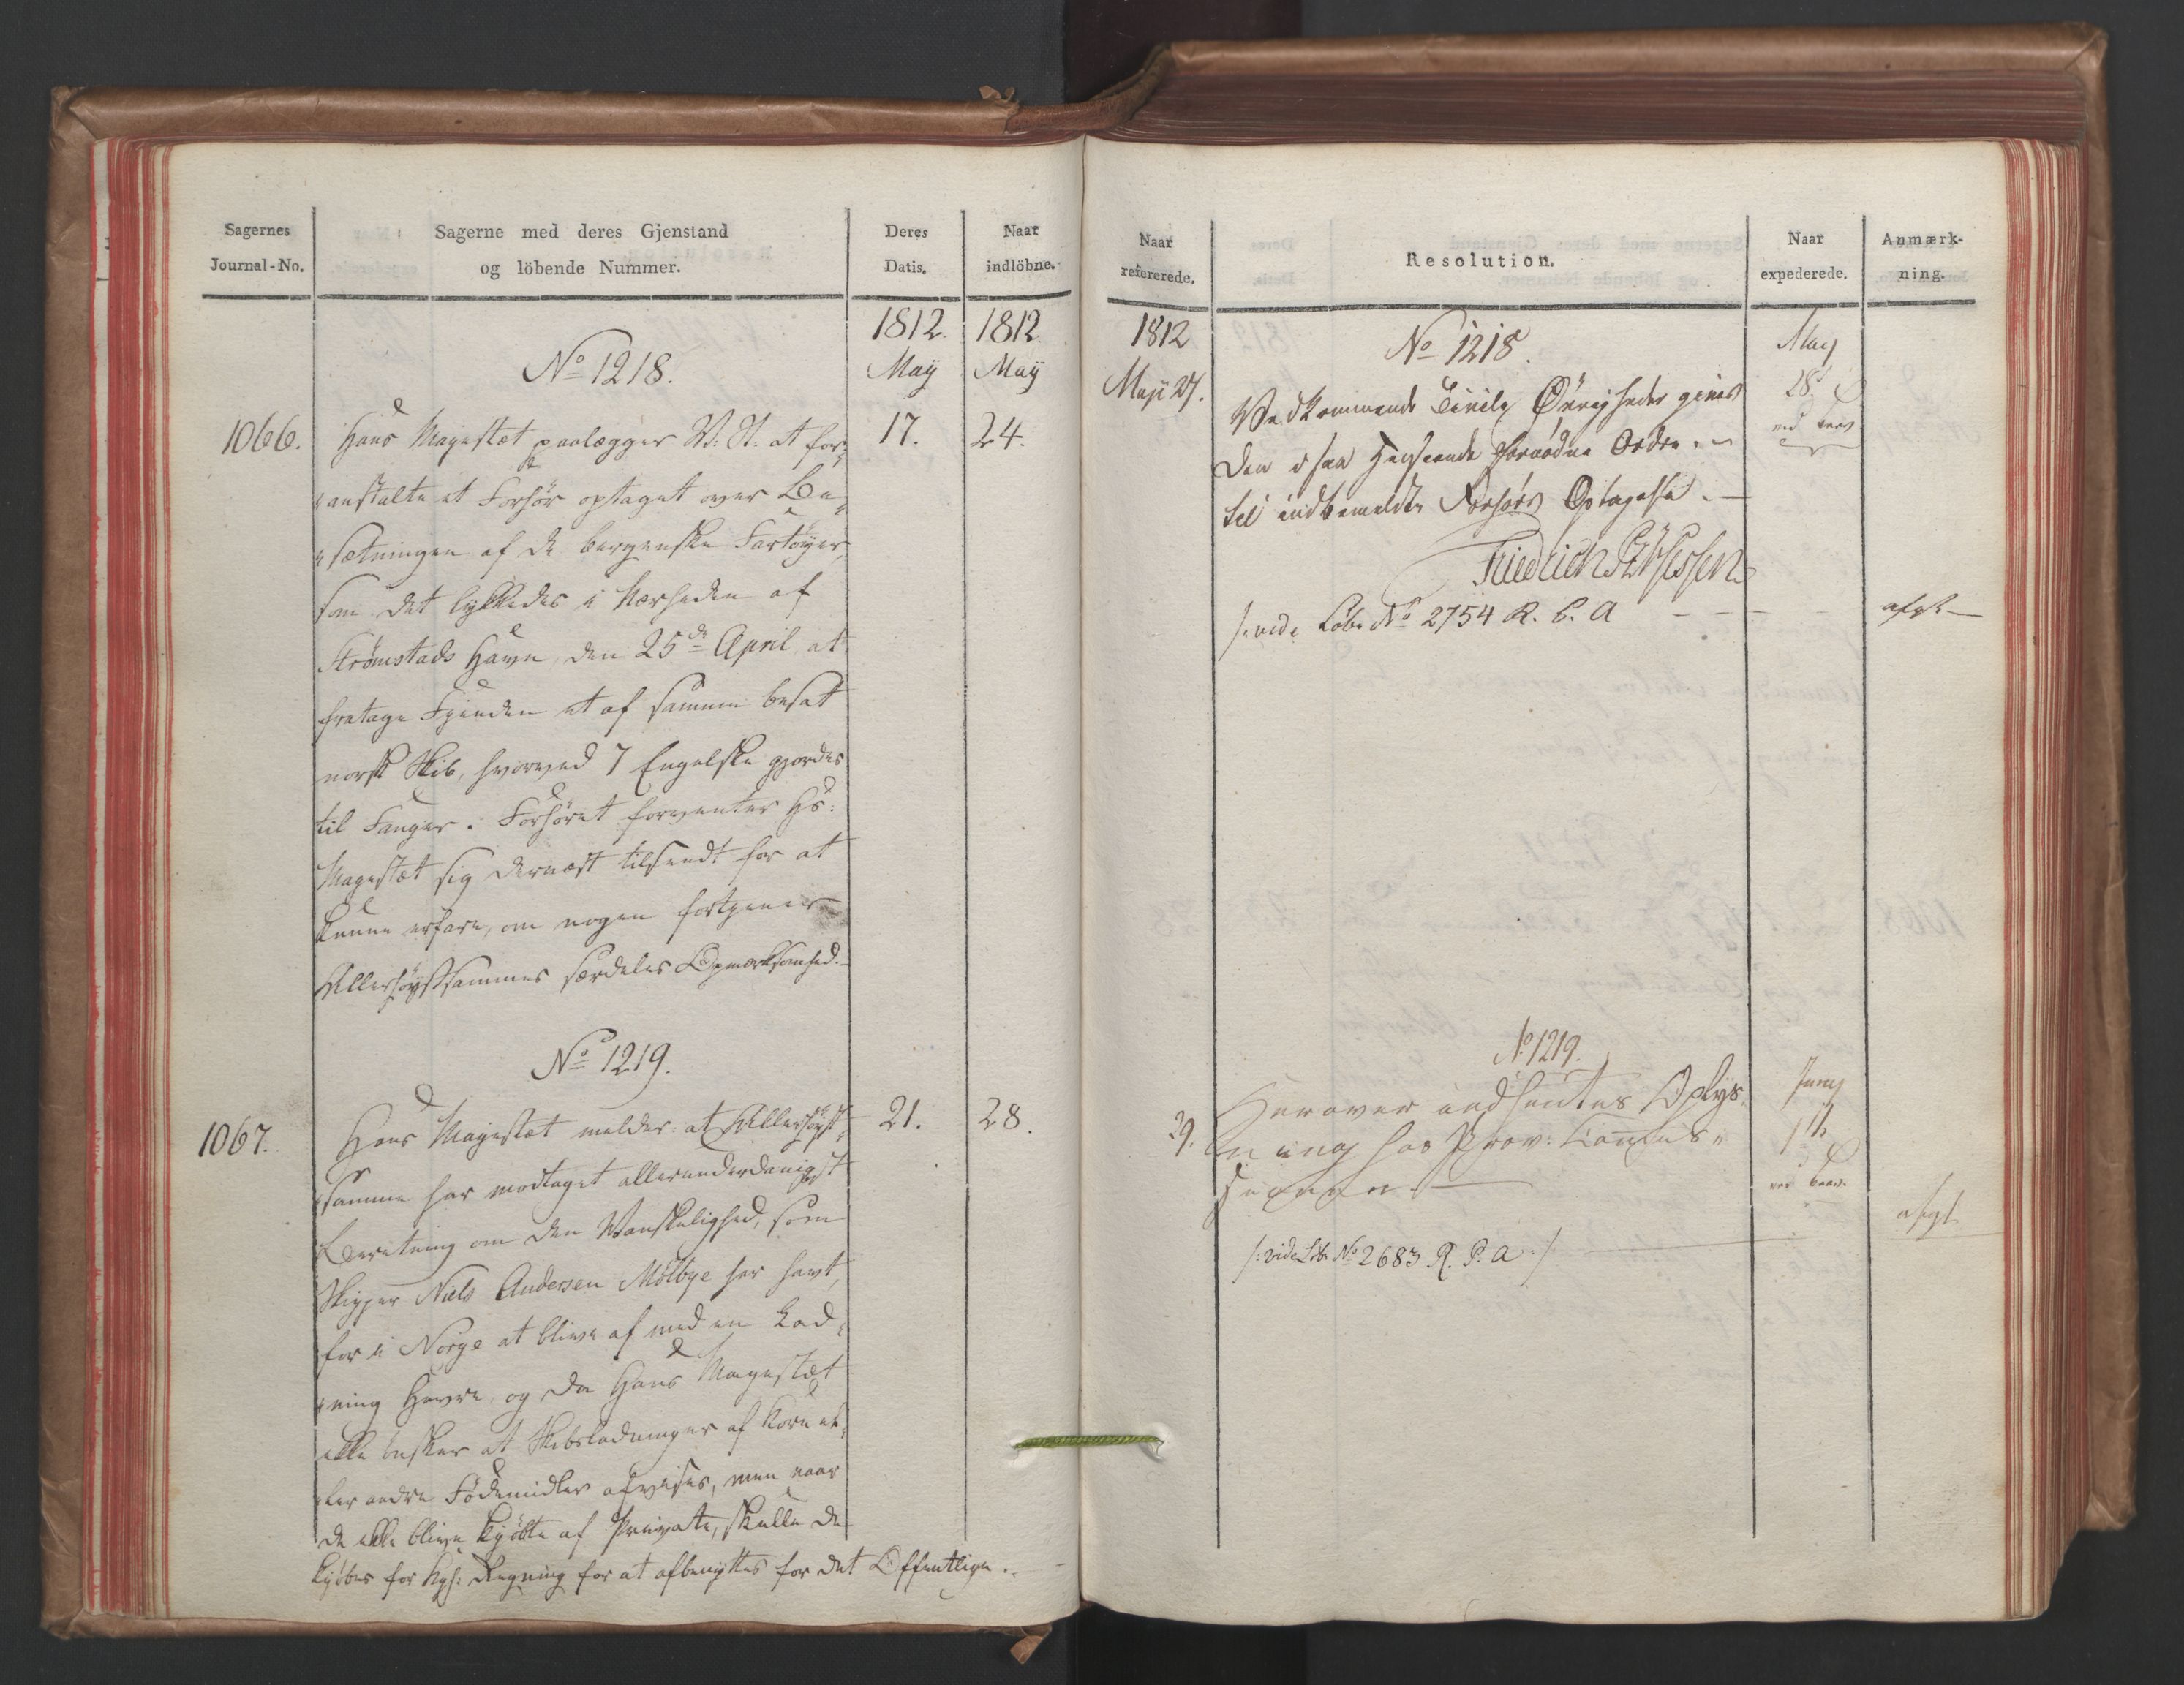 Sagernes
Journal-No.
Sagerne med deres Gjenstand
og löbende Nummer.
Deres
Datis.
Naar
indlöbne.
1812.
May
1812.
May
No 1218.
1066.
17.
24.
Hans Majestæt paalægger V: St: at for-
anstalte et Forhör optaget over Be-
sætningen af de bergenske Fartöyer,
som det lykkedes i Nærheden af
Strømstads Havn, den 25de April at
fratage Fienden et af samme besat
norsk Skib, hvorved 7 Engelske giordes
til Fanger. Forhöret forventer Hs:
Majestæt sig dernæst tilsendt for at
kunne erfare, om nogen fortjener
Allerhöystsammes særdeles Opmærksomhed.
No 1219.
1067.
21.
28.
Hans Majestæt melder: at Allerhöyst-
samme har modtaget allerunderdanigst
Beretning om den Vanskelighed, som
Skipper Niels Andersen Mölbye har havt,
for i Norge at blive af med en Lad-
ning Havre, og da Hans Majestæt
ikke önsker at Skibsladninger af Korn el-
ler andre Födemidler afvises, men naar
de ikke blive kjöbte af Private, skulle de
kjöbes for Kgl: Regning for at afbenyttes for det Offentlige.
Naar
refererede.
Resolution.
Naar
expederede.
Anmærk-
ning.
1812
Maji 27.
No 1218.
May
28
Vedkommende Civile Övrighed gives
den i saa Henseende fornødne Ordre
til indbemeldte Forhörs Optagelse.
/: vide Löbe No 2754 R. P. A
afgt
No 1219.
29.
Juny
1ste
Herover indhentes Oplys-
ning hos Prov: Commis-
sionen.
/: vide Löb No 2683 R. P. A :/
afgt